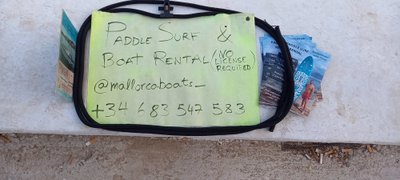 PADDLE SURF &
BOAT RENTAL (NO LICENSE REQUIRED)
@mallorcaboats_
+34 683 547 583